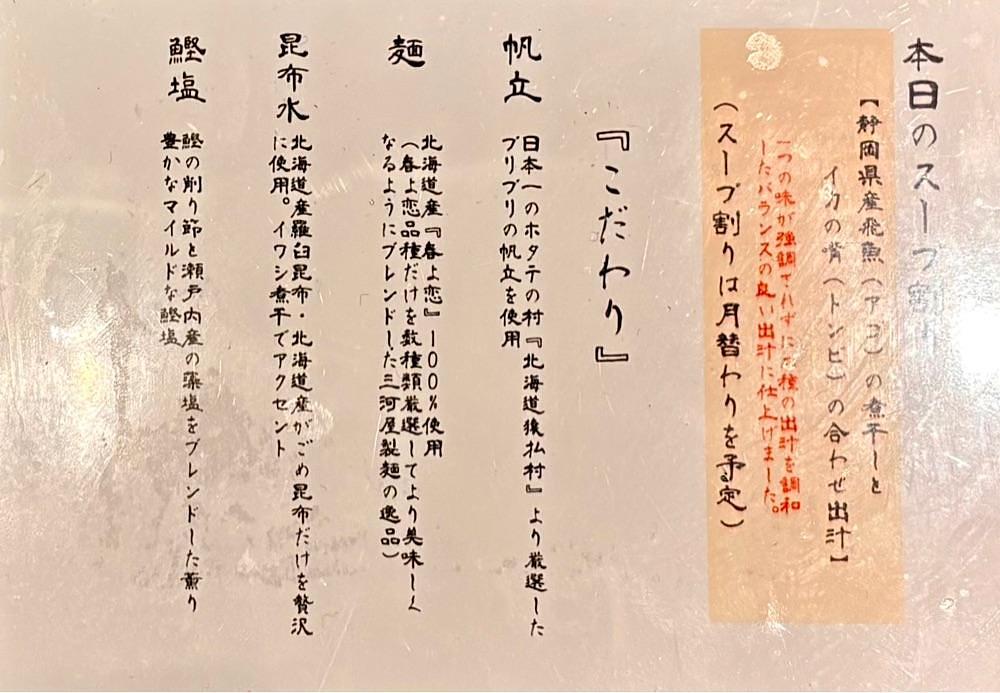 本日のスープ割り
【静岡県産飛魚（アゴ）の煮干しと
イカの嘴（トンビ）の合わせ出汁】
一つの味が強調されずに二種の出汁を調和
したバランスの良い出汁に仕上げました。
（スープ割りは月替わりを予定）
『こだわり』
帆立
日本一のホタテの村『北海道猿払村』より厳選した
プリプリの帆立を使用
麺
北海道産『春よ恋』100％使用
（春よ恋品種だけを数種類厳選してより美味しく
なるようにブレンドした三河屋製麺の逸品）
昆布水
北海道産羅臼昆布・北海道産がごめ昆布だけを贅沢
に使用。イワシ煮干でアクセント
鰹塩
鰹の削り節と瀬戸内産の藻塩をブレンドした薫り
豊かなマイルドな鰹塩